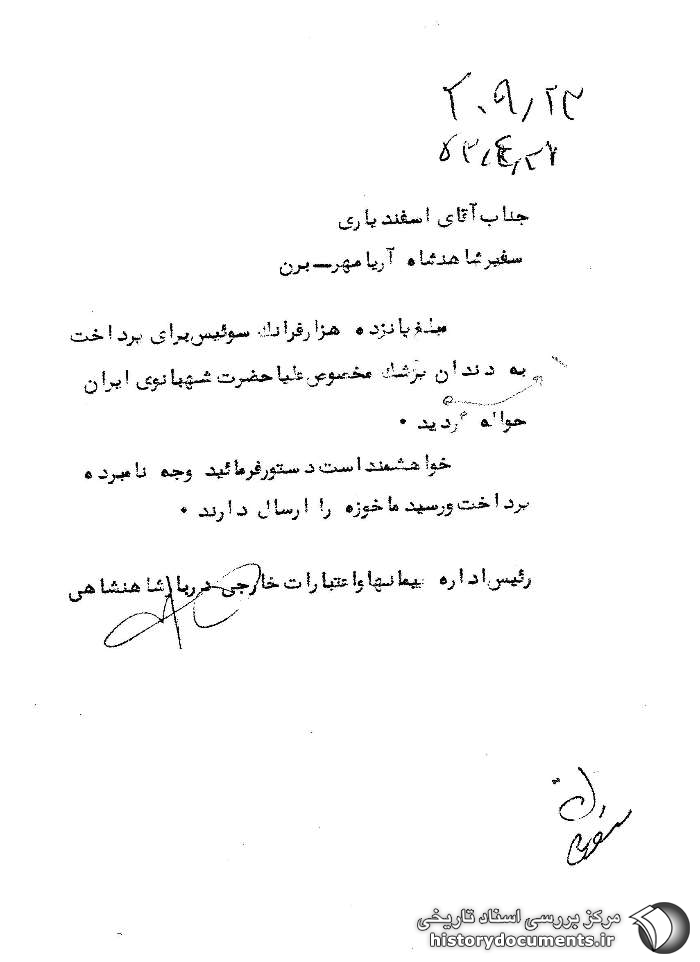 ۲۰۹/۲۳
۵۳/۴/۲۷
جناب آقای اسفندیاری
سفیر شاهنشاه آریامهر - برن
مبلغ پانزده هزار فرانك سوئیس برای پرداخت
به دندان پزشك مخصوص علیاحضرت شهبانوی ایران
حواله گردید .
خواهشمند است دستور فرمائید وجه نامبرده
پرداخت و رسید ماخوزه را ارسال دارند .
رئیس اداره پیمانها و اعتبارات خارجی دربار شاهنشاهی
مرکز بررسی اسناد تاریخی
historydocuments.ir